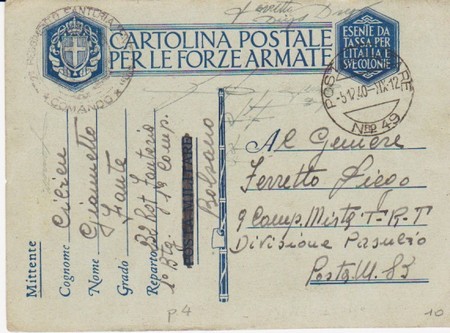 Ferretto
Diego
CARTOLINA POSTALE
PER LE FORZE ARMATE
ESENTE DA
TASSA PER
L'ITALIA E
SVE COLONIE
COMANDO
POSTA
-5.12.40-XIX-12
No 49
Al Geniere
Ferretto Diego
9 Comp. Mista T.R.T
Divisione Pasubio
Posta M. 83
Mittente
Cognome
Nome Giannetto
Grado Fante
Reparto 232 Rgt Fanteria
1° Btg. 1a Comp.
POSTA MILITARE
Bolzano
P 4
10